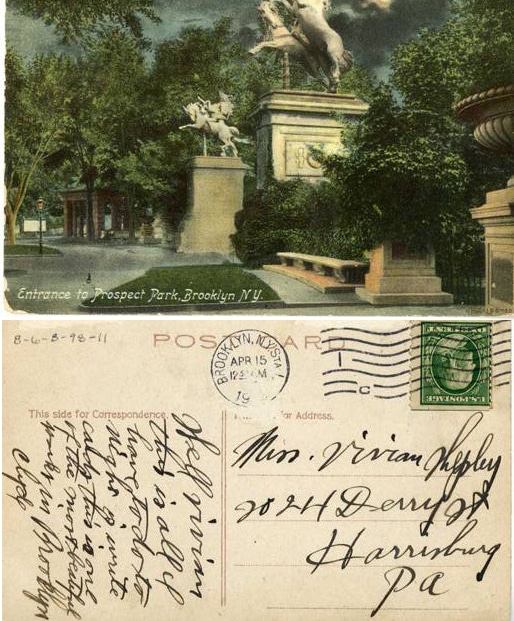 Entrance to Prospect Park, Brooklyn N.Y.
8-6-B-98-11
POST CARD
BROOKLYN, N.Y. STA
APR 15
12 M
19
1
C
U.S. POSTAGE
This side for Correspondence.
for Address.
Well Vivian
this is all I
have to do to
night is write
cards this is one
of the most beautiful
in Brooklyn
Clyde
Miss. Vivian Shepley
2024 Derry St
Harrisburg
Pa